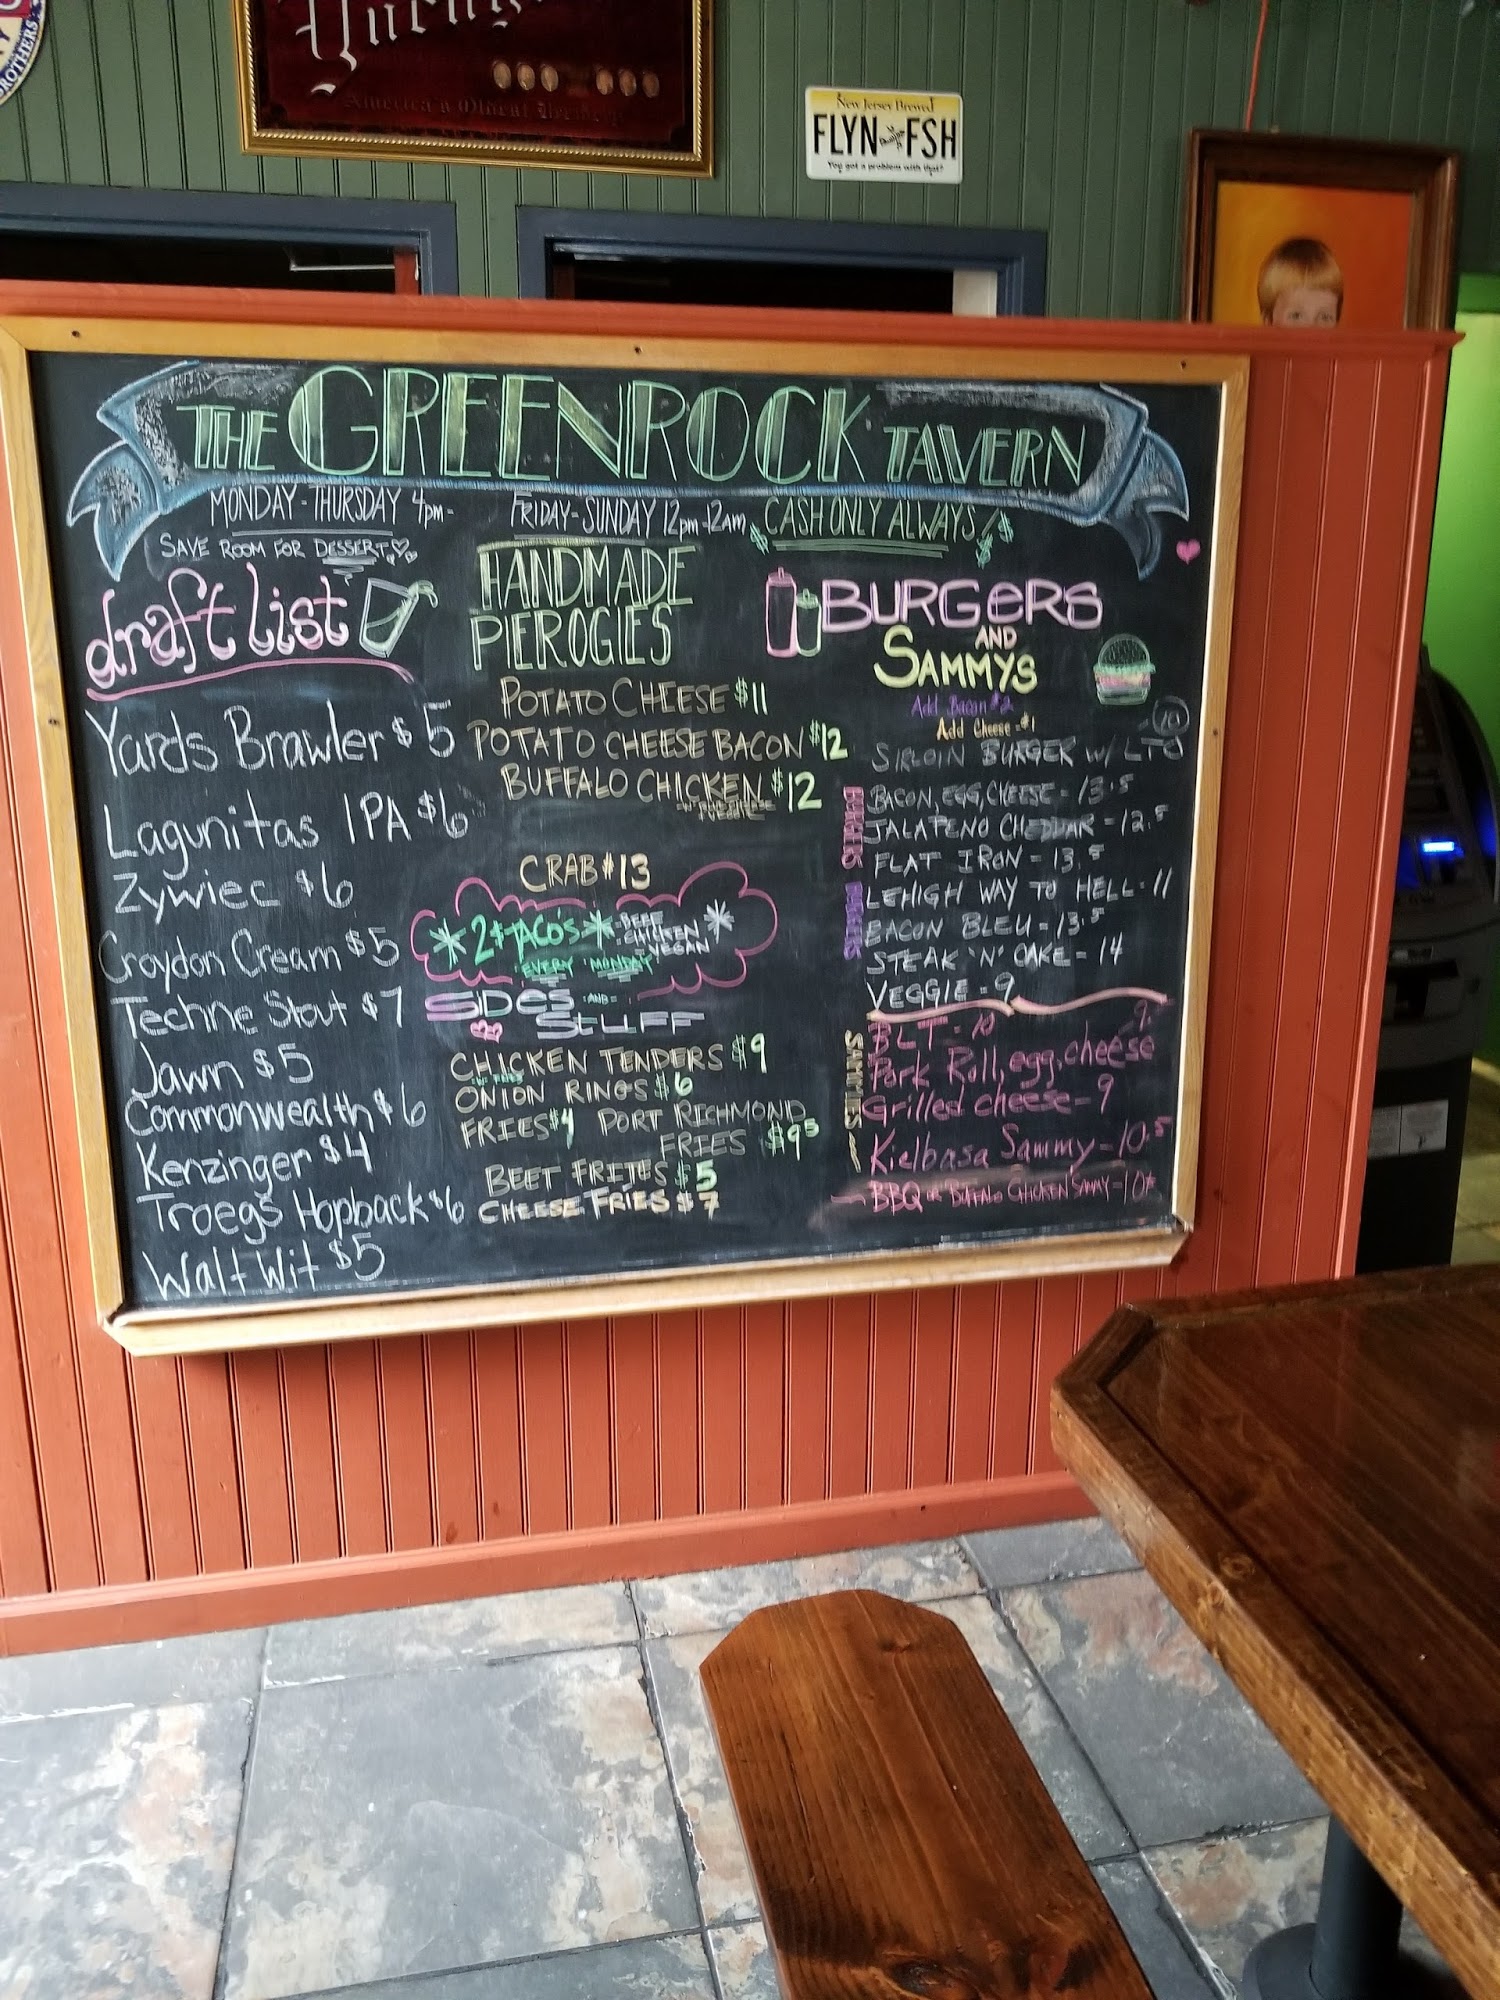 BROTHERS
Yueng
America's Oldest
New Jersey Brewed
FLYN FSH
You got a problem with that?
THE GREENROCK TAVERN
MONDAY-THURSDAY 4pm- FRIDAY-SUNDAY 12pm-2am CASH ONLY ALWAYS! $
SAVE ROOM FOR DESSERT
draft list
Yards Brawler $5
Lagunitas IPA $6
Zywiec $6
Croydon Cream $5
Techne Stout $7
Jawn $5
Commonwealth $6
Kenzinger $4
Troegs Hopback $6
Walt Wit $5
HANDMADE
PIEROGIES
POTATO CHEESE $11
POTATO CHEESE BACON $12
BUFFALO CHICKEN $12
CRAB $13
* 2$ TACO'S * -BEEF
-CHICKEN
-VEGAN *
EVERY MONDAY
SIDES -AND-
STUFF
CHICKEN TENDERS $9
W/ FRIES
ONION RINGS $6
FRIES $4 PORT RICHMOND
FRIES $9.5
BEET FRIJES $5
CHEESE FRIES $7
BURGERS
AND
SAMMYS
Add Bacon-$2
Add Cheese-$1
SIRLOIN BURGER W/ LTO -10
BURGERS BURGERS
BACON, EGG, CHEESE - 13.5
JALAPENO CHEDDAR - 12.5
FLAT IRON - 13.5
LEHIGH WAY TO HELL - 11
BACON BLEU - 13.5
STEAK 'N' CAKE - 14
VEGGIE - 9
SAMMIES
BLT - 10
Pork Roll, egg, cheese -9
Grilled cheese - 9
Kielbasa Sammy - 10.5
BBQ or BUFFALO CHICKEN SAMMY - 10